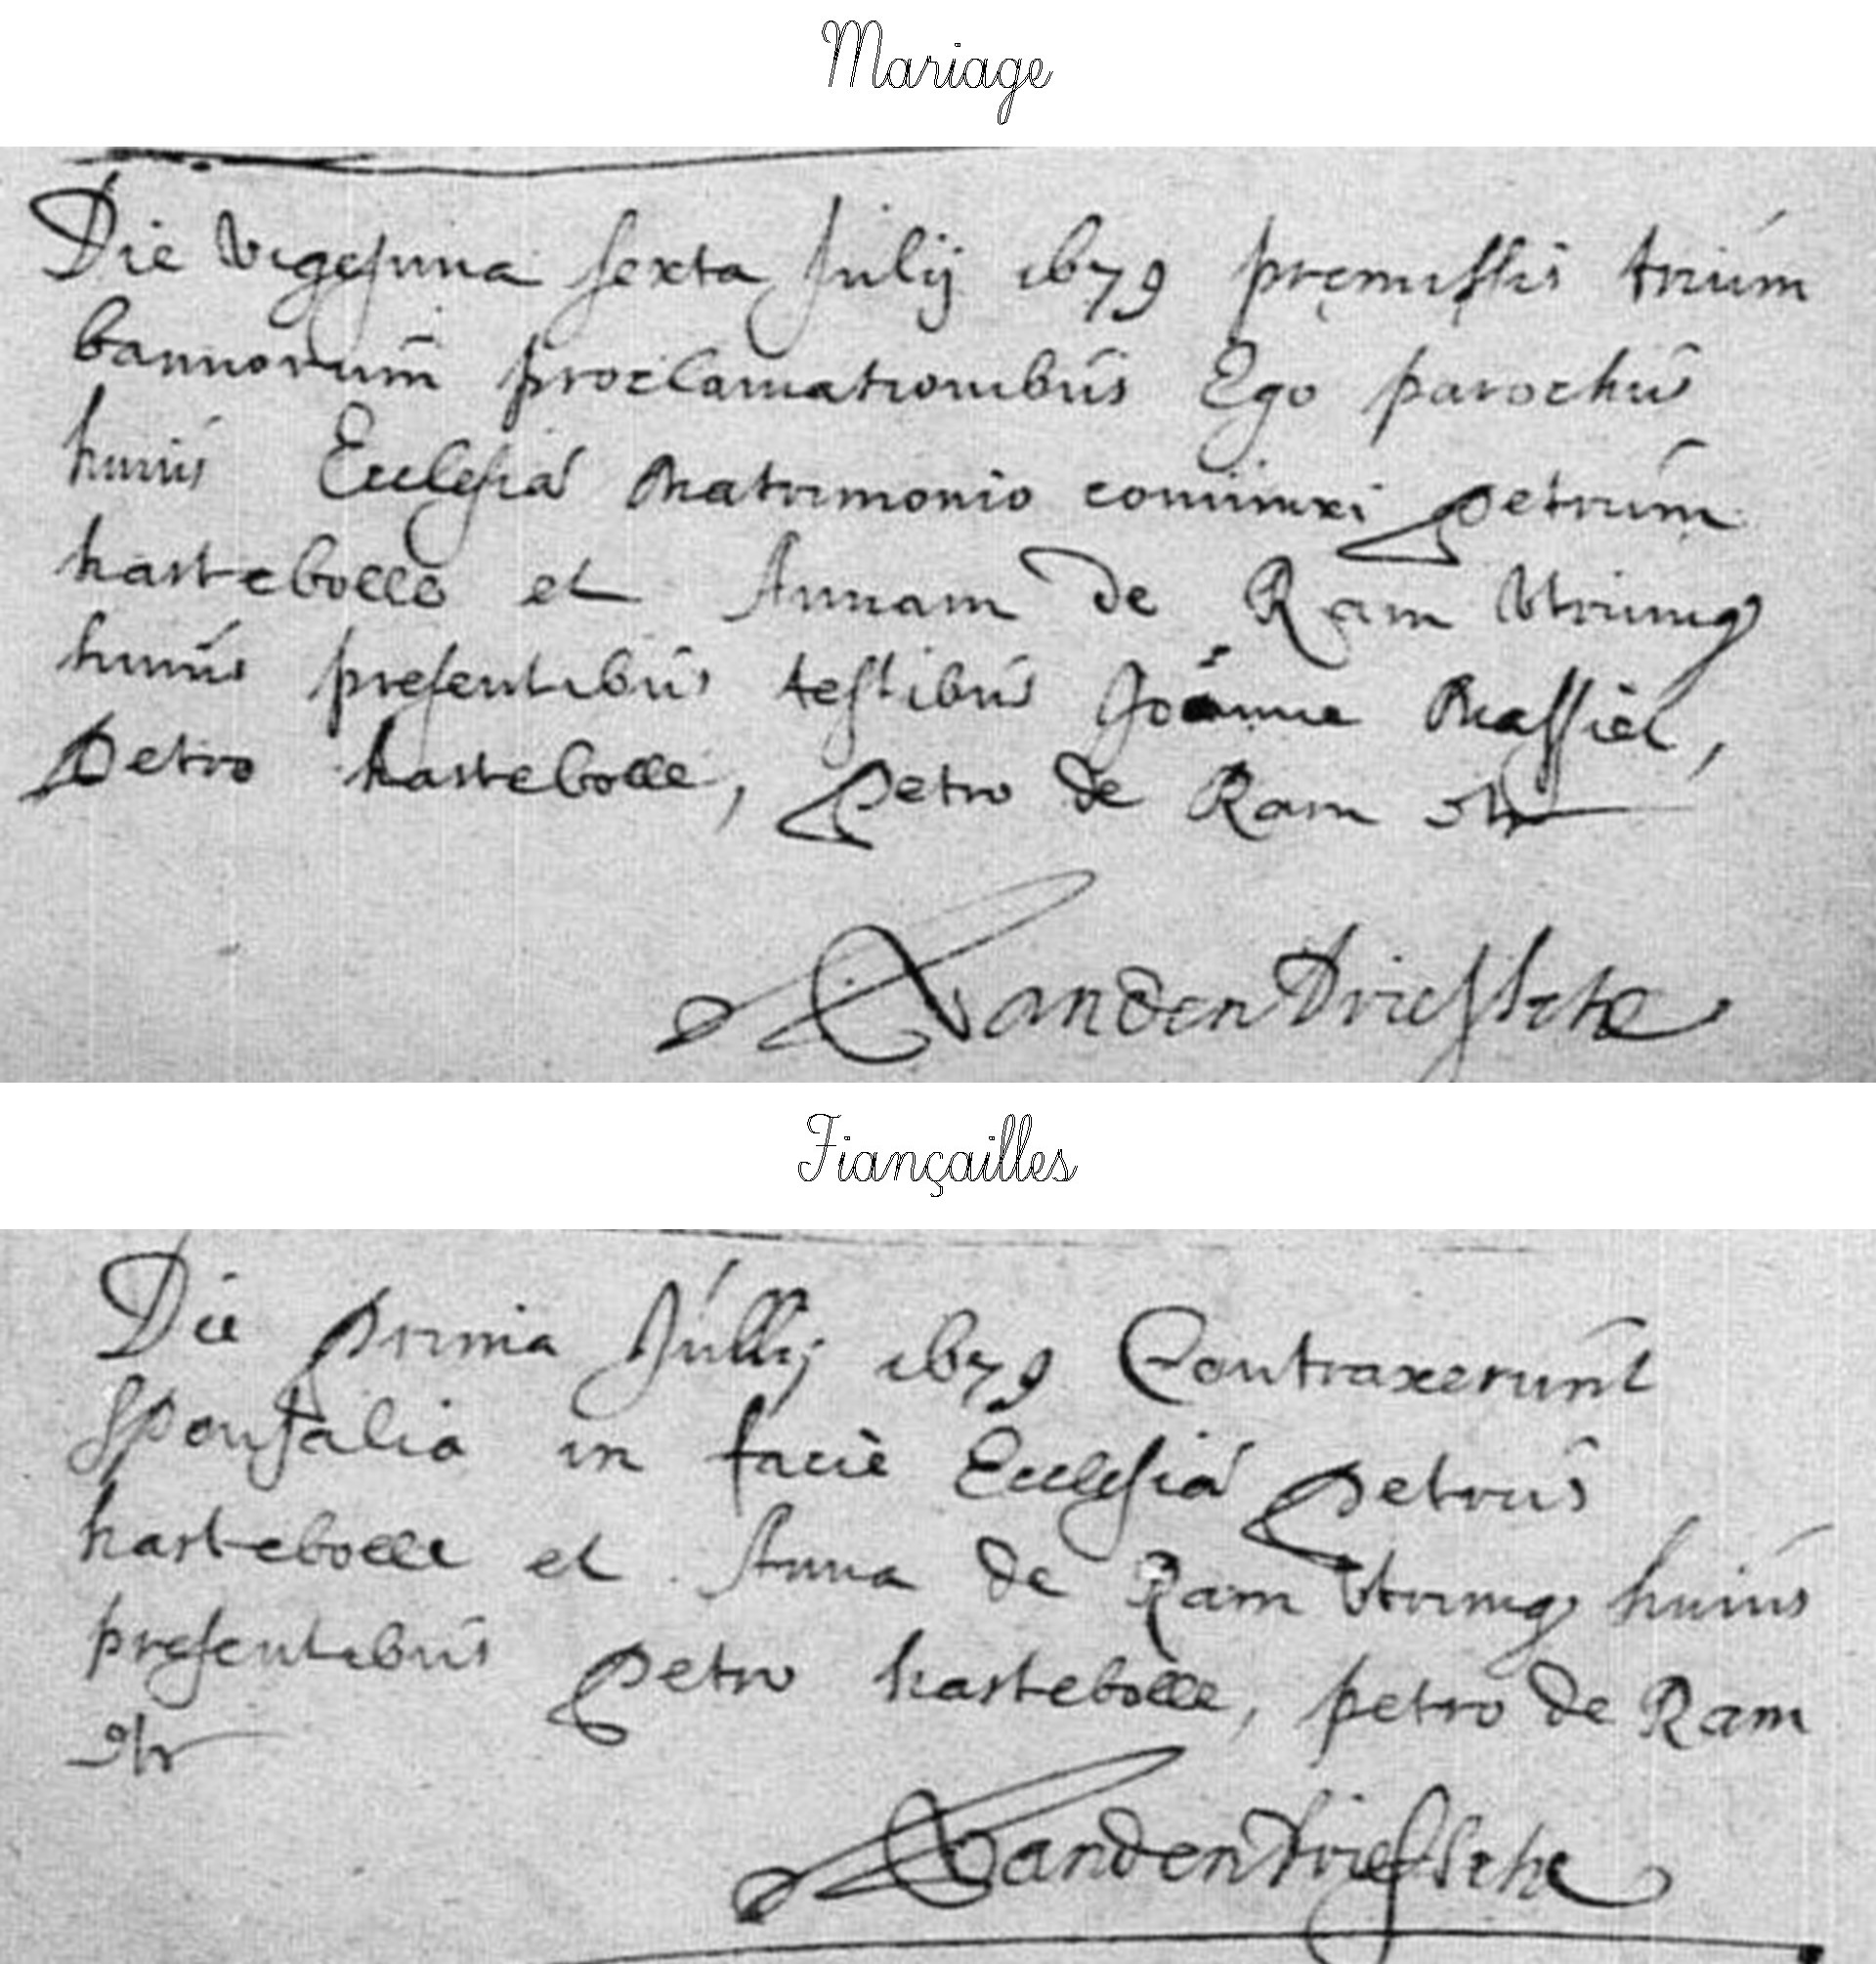 Mariage
Die vegesima sexta Julij 1679 premissis trium
bannorum proclamationibus Ego parochus
huius Ecclesia Matrimonio coniunxi Petrum
hastebolle et Annam de Ram Utriumq
huius presentibus testibus Joanne Massiel,
Petro hastebolle, Petro de Ram
Vanden Driessche
Fiançailles
Die Prima Jullij 1679 Contraxerunt
sponsalia in facie Ecclesia Petrus
hastebolle et Anna de Ram Utrumq huius
presentibus Petro hastebolle, petro de Ram
Vanden Driessche